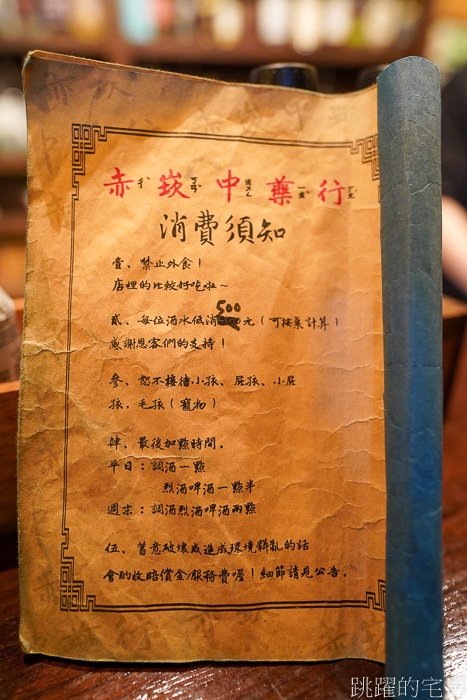 赤崁中藥行
消費須知
壹、禁止外食！
店裡的比較好吃啦～
貳、每位酒水低消500元（可按桌計算）
感謝恩客們的支持！
參、恕不接待小孩、屁孩、小屁
孩，毛孩（寵物）
肆、最後加點時間。
平日：調酒一點
烈酒啤酒一點半
週末：調酒烈酒啤酒兩點
伍、蓄意破壞或造成環境髒亂的話
會酌收賠償金/服務費喔！細節請見公告。
跳躍的宅男